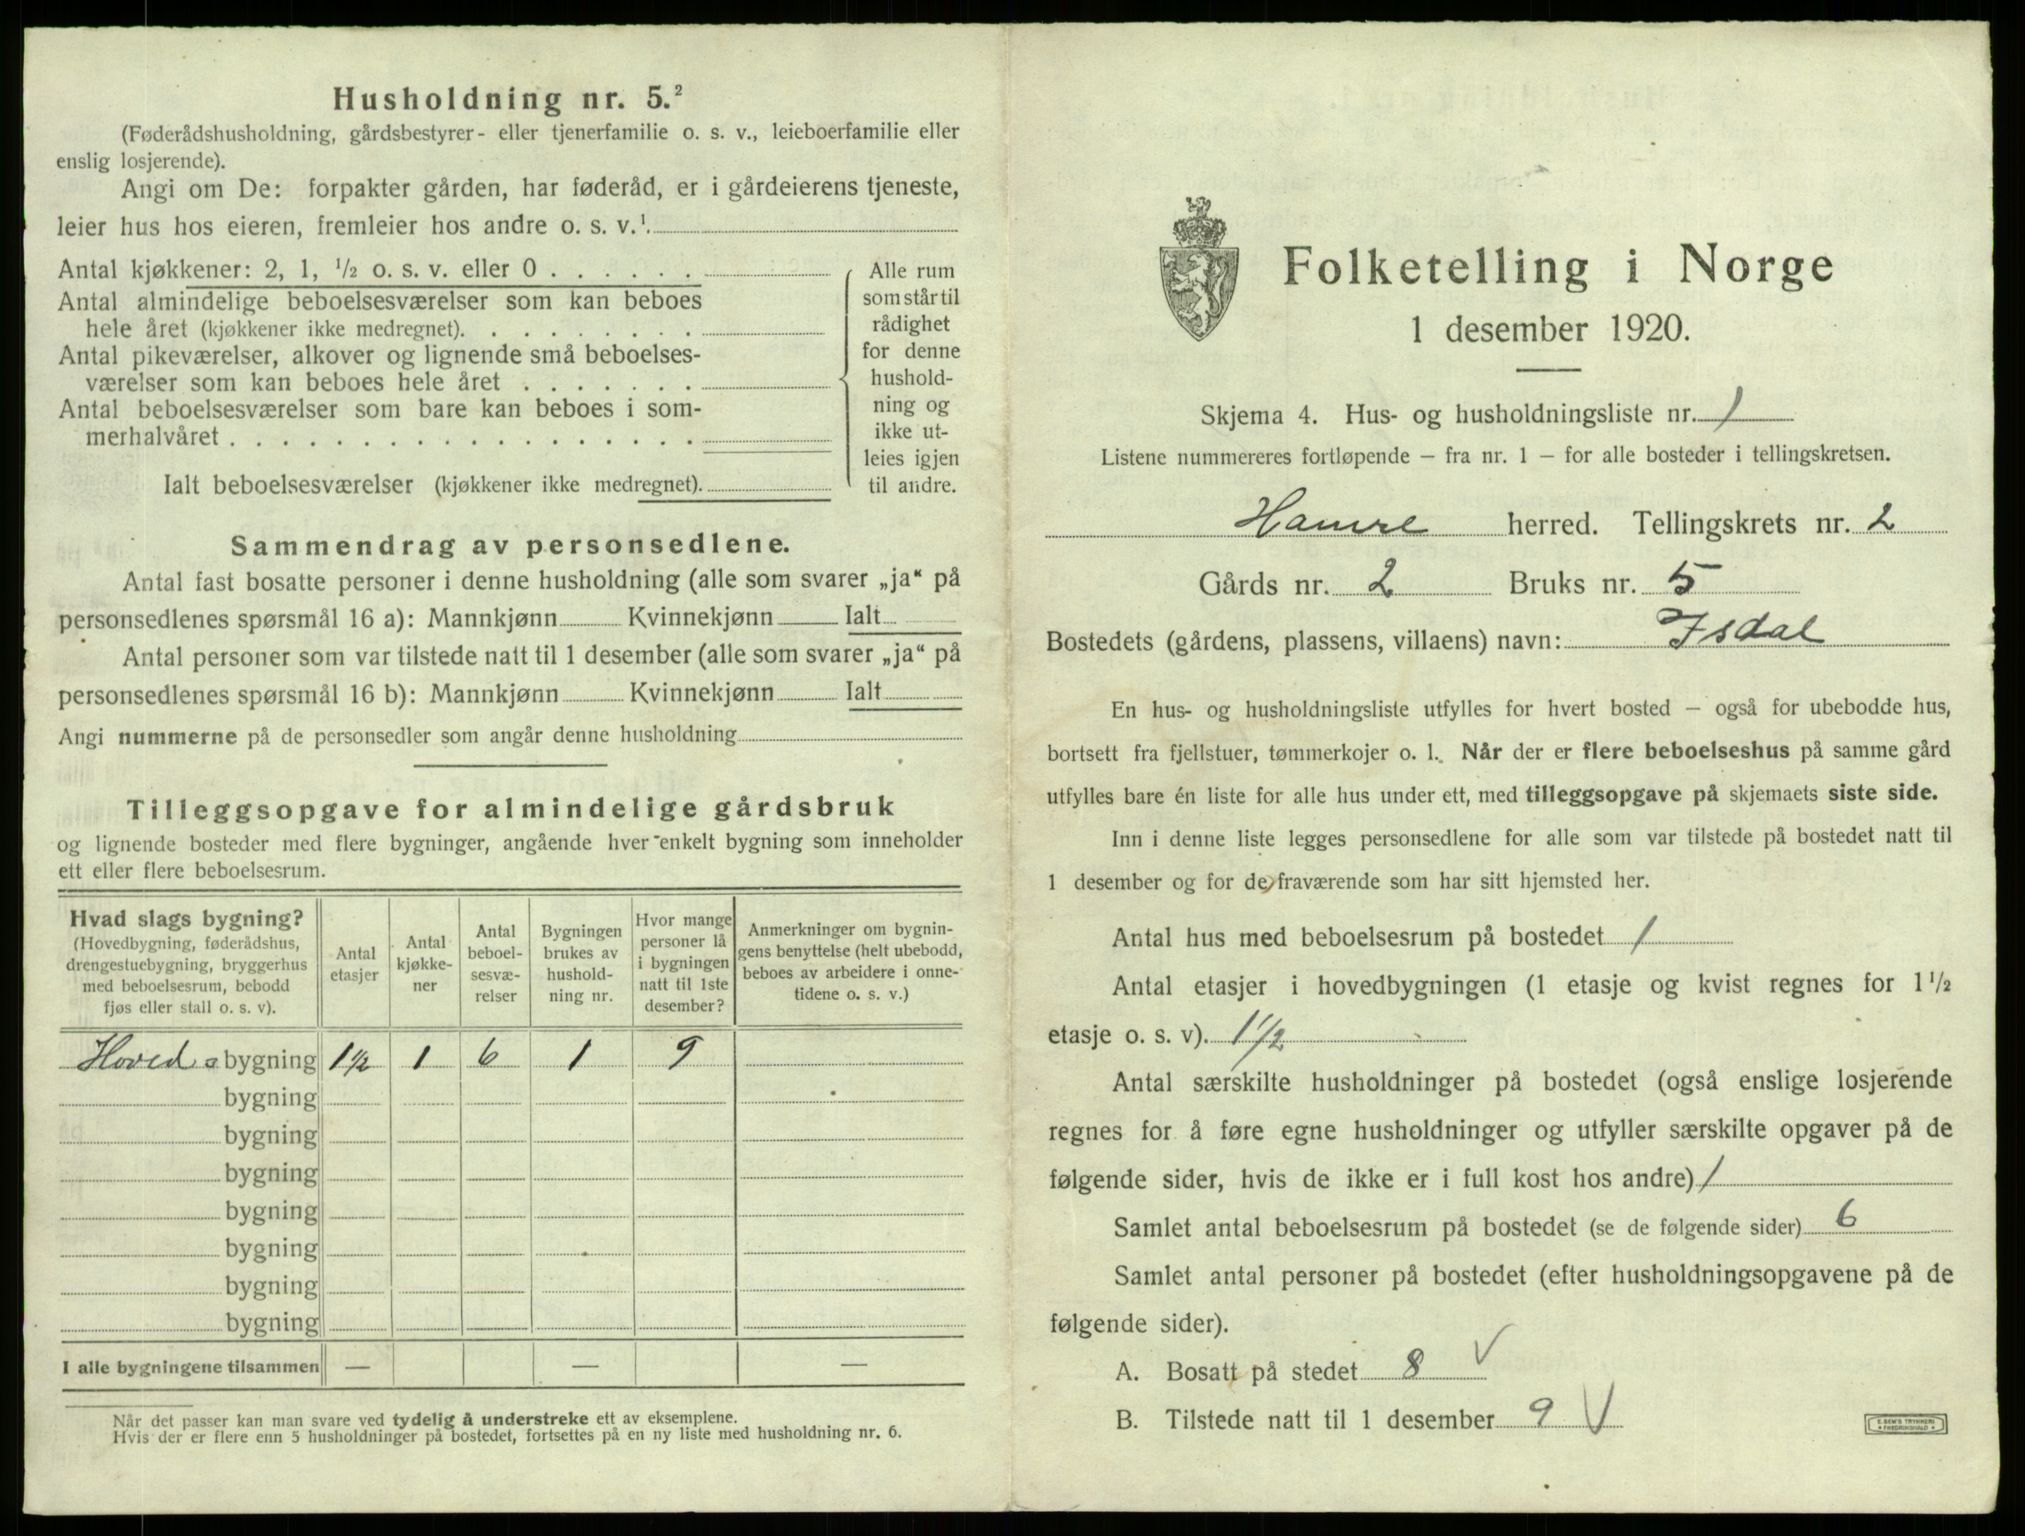 Husholdning nr. 5.²
(Føderådshusholdning, gårdsbestyrer- eller tjenerfamilie o. s. v., leieboerfamilie eller
enslig losjerende).
Angi om De: forpakter gården, har føderåd, er i gårdeierens tjeneste,
leier hus hos eieren, fremleier hos andre o. s. v.¹
Antal kjøkkener: 2, 1, ½ o. s. v. eller 0 . . . . . .
Antal almindelige beboelsesværelser som kan beboes
hele året (kjøkkener ikke medregnet). . . . . . . . .
Antal pikeværelser, alkover og lignende små beboelses-
værelser som kan beboes hele året . . . . . . .
Antal beboelsesværelser som bare kan beboes i som-
merhalvåret . . . . . . . . . . . . . . . . . .
Ialt beboelsesværelser (kjøkkener ikke medregnet).
Alle rum
som står til
rådighet
for denne
hushold-
ning og
ikke ut-
leies igjen
til andre.
Sammendrag av personsedlene.
Antal fast bosatte personer i denne husholdning (alle som svarer „ja“ på
personsedlenes spørsmål 16 a): Mannkjønn Kvinnekjønn Ialt
Antal personer som var tilstede natt til 1 desember (alle som svarer „ja“ på
personsedlenes spørsmål 16 b): Mannkjønn Kvinnekjønn Ialt
Angi nummerne på de personsedler som angår denne husholdning
Tilleggsopgave for almindelige gårdsbruk
og lignende bosteder med flere bygninger, angående hver enkelt bygning som inneholder
ett eller flere beboelsesrum.
Hvad slags bygning?
(Hovedbygning, føderådshus,
drengestuebygning, bryggerhus
med beboelsesrum, bebodd
fjøs eller stall o. s. v).
Antal
etasjer
Antal
kjøkke-
ner
Antal
beboel-
sesvæ-
relser
Bygningen
brukes av
hushold-
ning nr.
Hvor mange
personer lå
i bygningen
natt til 1ste
desember?
Anmerkninger om bygnin-
gens benyttelse (helt ubebodd,
beboes av arbeidere i onne-
tidene o. s. v.)
Hoved- bygning 1½ 1 6 1 9
bygning
bygning
bygning
bygning
bygning
bygning
bygning
I alle bygningene tilsammen — — —
Når det passer kan man svare ved tydelig å understreke ett av eksemplene.
Hvis der er flere enn 5 husholdninger på bostedet, fortsettes på en ny liste med husholdning nr. 6.
Folketelling i Norge
1 desember 1920.
Skjema 4. Hus- og husholdningsliste nr. 1
Listene nummereres fortløpende – fra nr. 1 – for alle bosteder i tellingskretsen.
Hamre herred. Tellingskrets nr. 2
Gårds nr. 2 Bruks nr. 5
Bostedets (gårdens, plassens, villaens) navn: Isdal
En hus- og husholdningsliste utfylles for hvert bosted – også for ubebodde hus,
bortsett fra fjellstuer, tømmerkojer o. l. Når der er flere beboelseshus på samme gård
utfylles bare én liste for alle hus under ett, med tilleggsopgave på skjemaets siste side.
Inn i denne liste legges personsedlene for alle som var tilstede på bostedet natt til
1 desember og for de fraværende som har sitt hjemsted her.
Antal hus med beboelsesrum på bostedet 1
Antal etasjer i hovedbygningen (1 etasje og kvist regnes for 1½
etasje o. s. v). 1½
Antal særskilte husholdninger på bostedet (også enslige losjerende
regnes for å føre egne husholdninger og utfyller særskilte opgaver på de
følgende sider, hvis de ikke er i full kost hos andre) 1
Samlet antal beboelsesrum på bostedet (se de følgende sider) 6
Samlet antal personer på bostedet (efter husholdningsopgavene på de
følgende sider).
A. Bosatt på stedet 8 V
B. Tilstede natt til 1 desember 9 V
E. SEM'S TRYKKERI
FREDRIKSHALD